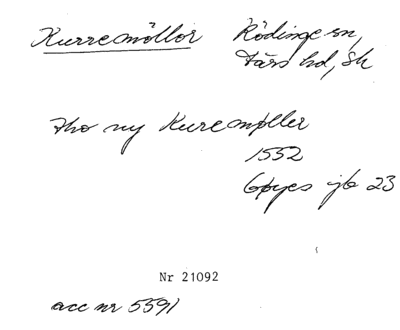 Kurremöllor Rödinge sn,
Färs hd, Sk
tho ny Kuremøller
1552
Gøyes jb 23
Nr 21092
acc nr 5591